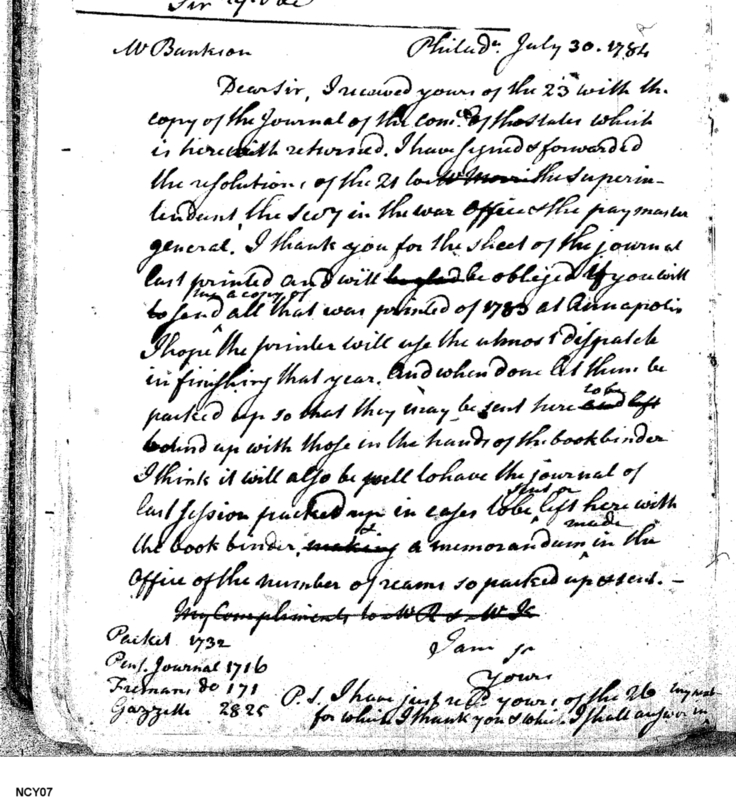 Mr Bankson Philada. July 30. 1784
Dear Sir, I received yours of the 23 with the
copy of the Journal of the come. of the states which
is herewith returned. I have signed & forwarded
the resolutions of the 21 to Mr Morris the superin-
tendant, the secy in the war office & the paymaster
general. I thank you for the sheet of the journal
last printed and will be glad be obliged If you will
me a copy of
to send all that was printed of 1783 at Annapolis
I hope the printer will use the utmost dispatch
in finishing that year. And when done let them be
to be
packed up so that they may be sent here and left
bound up with those in the hands of the bookbinder
I think it will also be well to have the journal of
sent or
last session packed up in cases to be left here with
& made
the book binder, making a memorandum in the
Office of the number of reams so packed up & sent. —
My Compliments to Mr R & Mr
I am Sr
Yours
Packet 1732
Pens. Journal 1716
Fremans do 171
Gazzette 2825
P.S. I have just recd. yours of the 26
for which I thank you & which I shall answer in
my next
NCY07